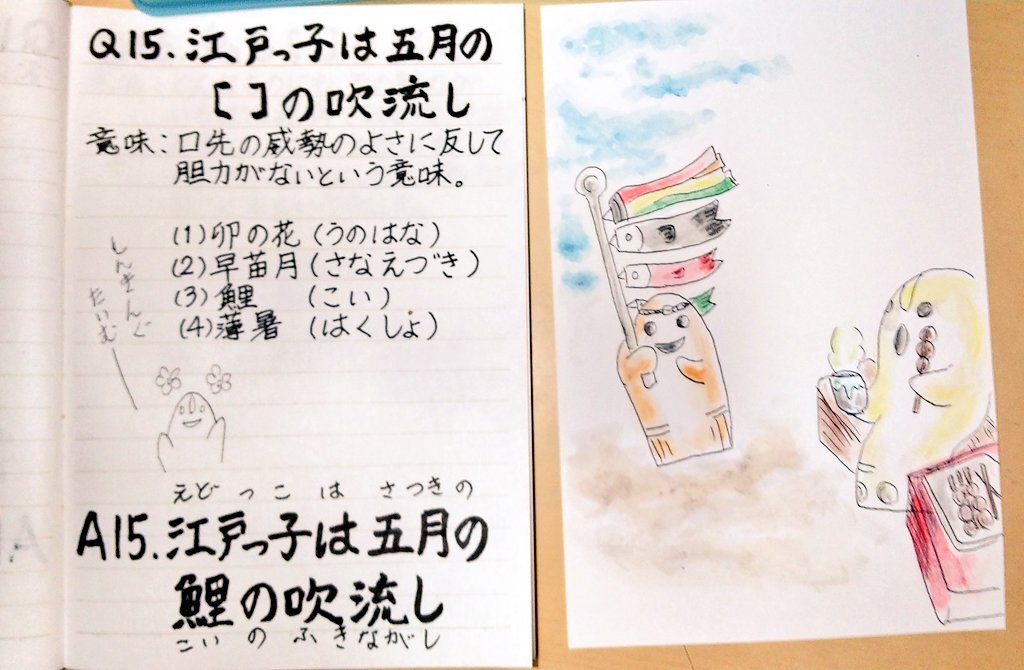 Q15.江戸っ子は五月の
[ ]の吹流し
意味:口先の威勢のよさに反して
胆力がないという意味。
(1)卯の花(うのはな)
(2)早苗月(さなえづき)
(3)鯉 (こい)
(4)薄暑 (はくしょ)
しんきんぐ
たいむ
えどっこ は さつきの
A15.江戸っ子は五月の
鯉の吹流し
こい の ふきながし